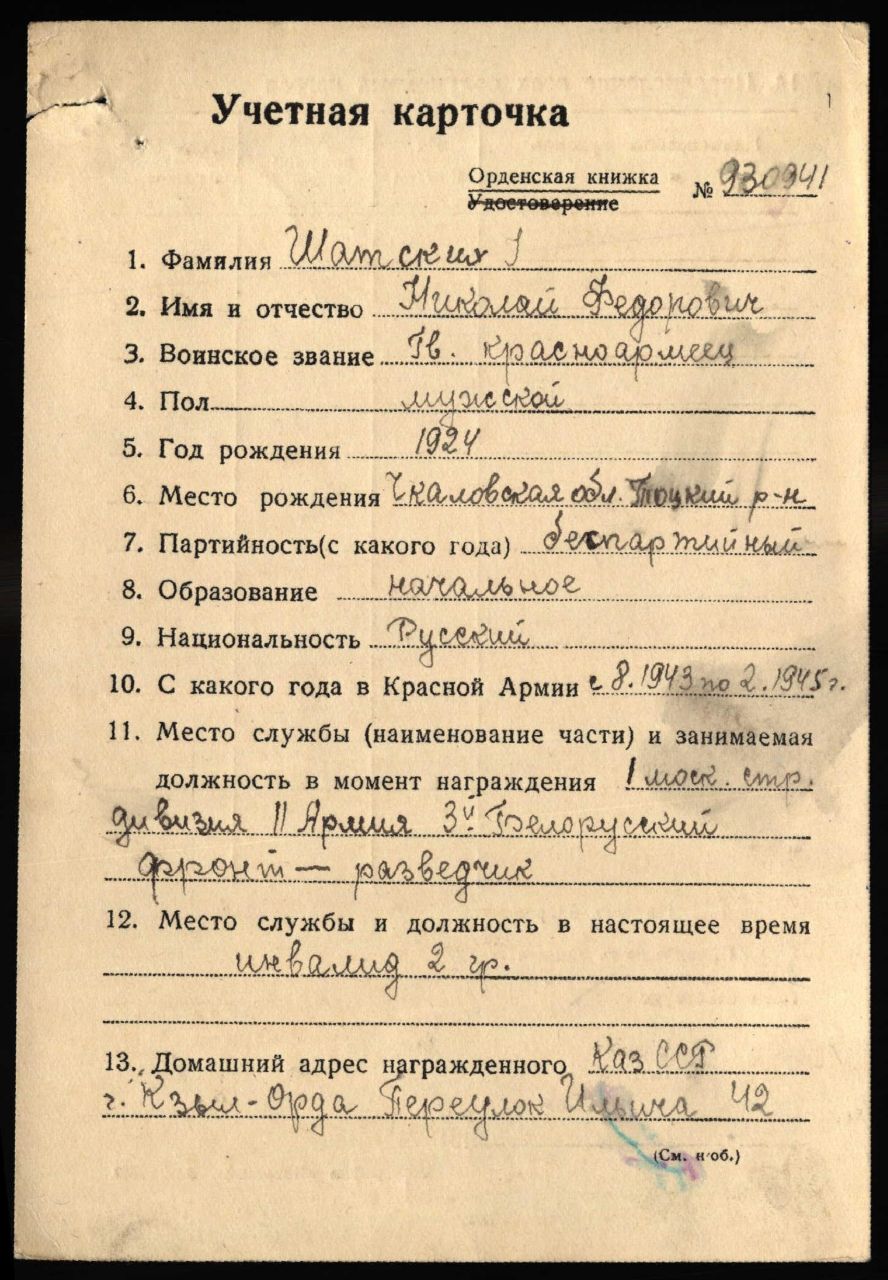 Учетная карточка
Орденская книжка
Удостоверение
№ 930941
1. Фамилия Шатских
2. Имя и отчество Николай Федорович
3. Воинское звание Гв. красноармеец
4. Пол мужской
5. Год рождения 1924
6. Место рождения Чкаловская обл. Тоцкий р-н
7. Партийность(с какого года) беспартийный
8. Образование начальное
9. Национальность Русский
10. С какого года в Красной Армии с 8.1943 по 2.1945г.
11. Место службы (наименование части) и занимаемая
должность в момент награждения 1 моск. стр.
дивизия 11 Армия 3й Белорусский
фронт — разведчик
12. Место службы и должность в настоящее время
инвалид 2 гр.
13. Домашний адрес награжденного Каз ССР
г. Кзыл-Орда Переулок Ильича 42
(См. н/об.)